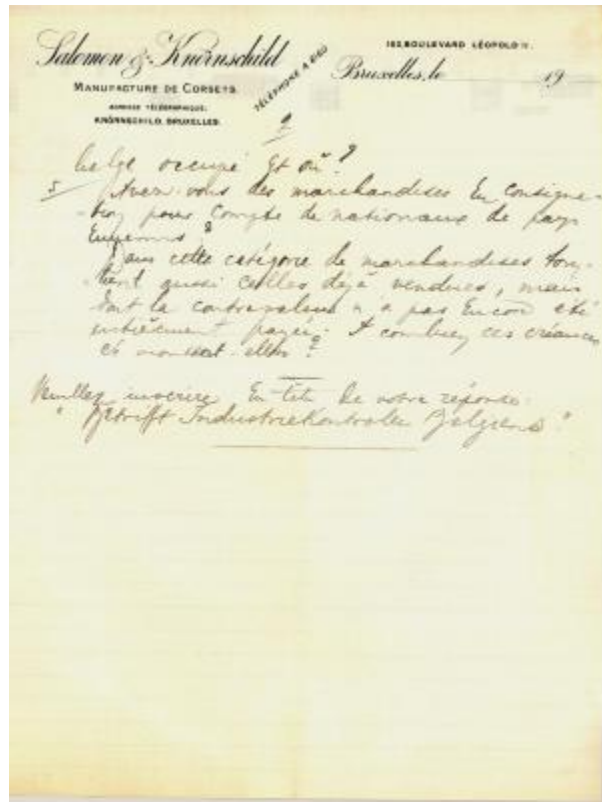 Salomon & Knörnschild
MANUFACTURE DE CORSETS.
ADRESSE TÉLÉGRAPHIQUE:
KNÖRNSCHILD, BRUXELLES.
TÉLÉPHONE A 6160
BOULEVARD LÉOPOLD II.
Bruxelles, le 19
belge occupé et où ?
5/ Avez-vous des marchandises en consigna-
-tion pour compte de nationaux de pays
Ennemis ?
Dans cette catégorie de marchandises tom-
-bent aussi celles déjà vendues, mais
dont la contrevaleur n'a pas encore été
entièrement payée. A combien ces créances
se montent-elles ?
Veuillez inscrire en tête de votre réponse.
" Betrifft Industriekontrolle Belgiens "